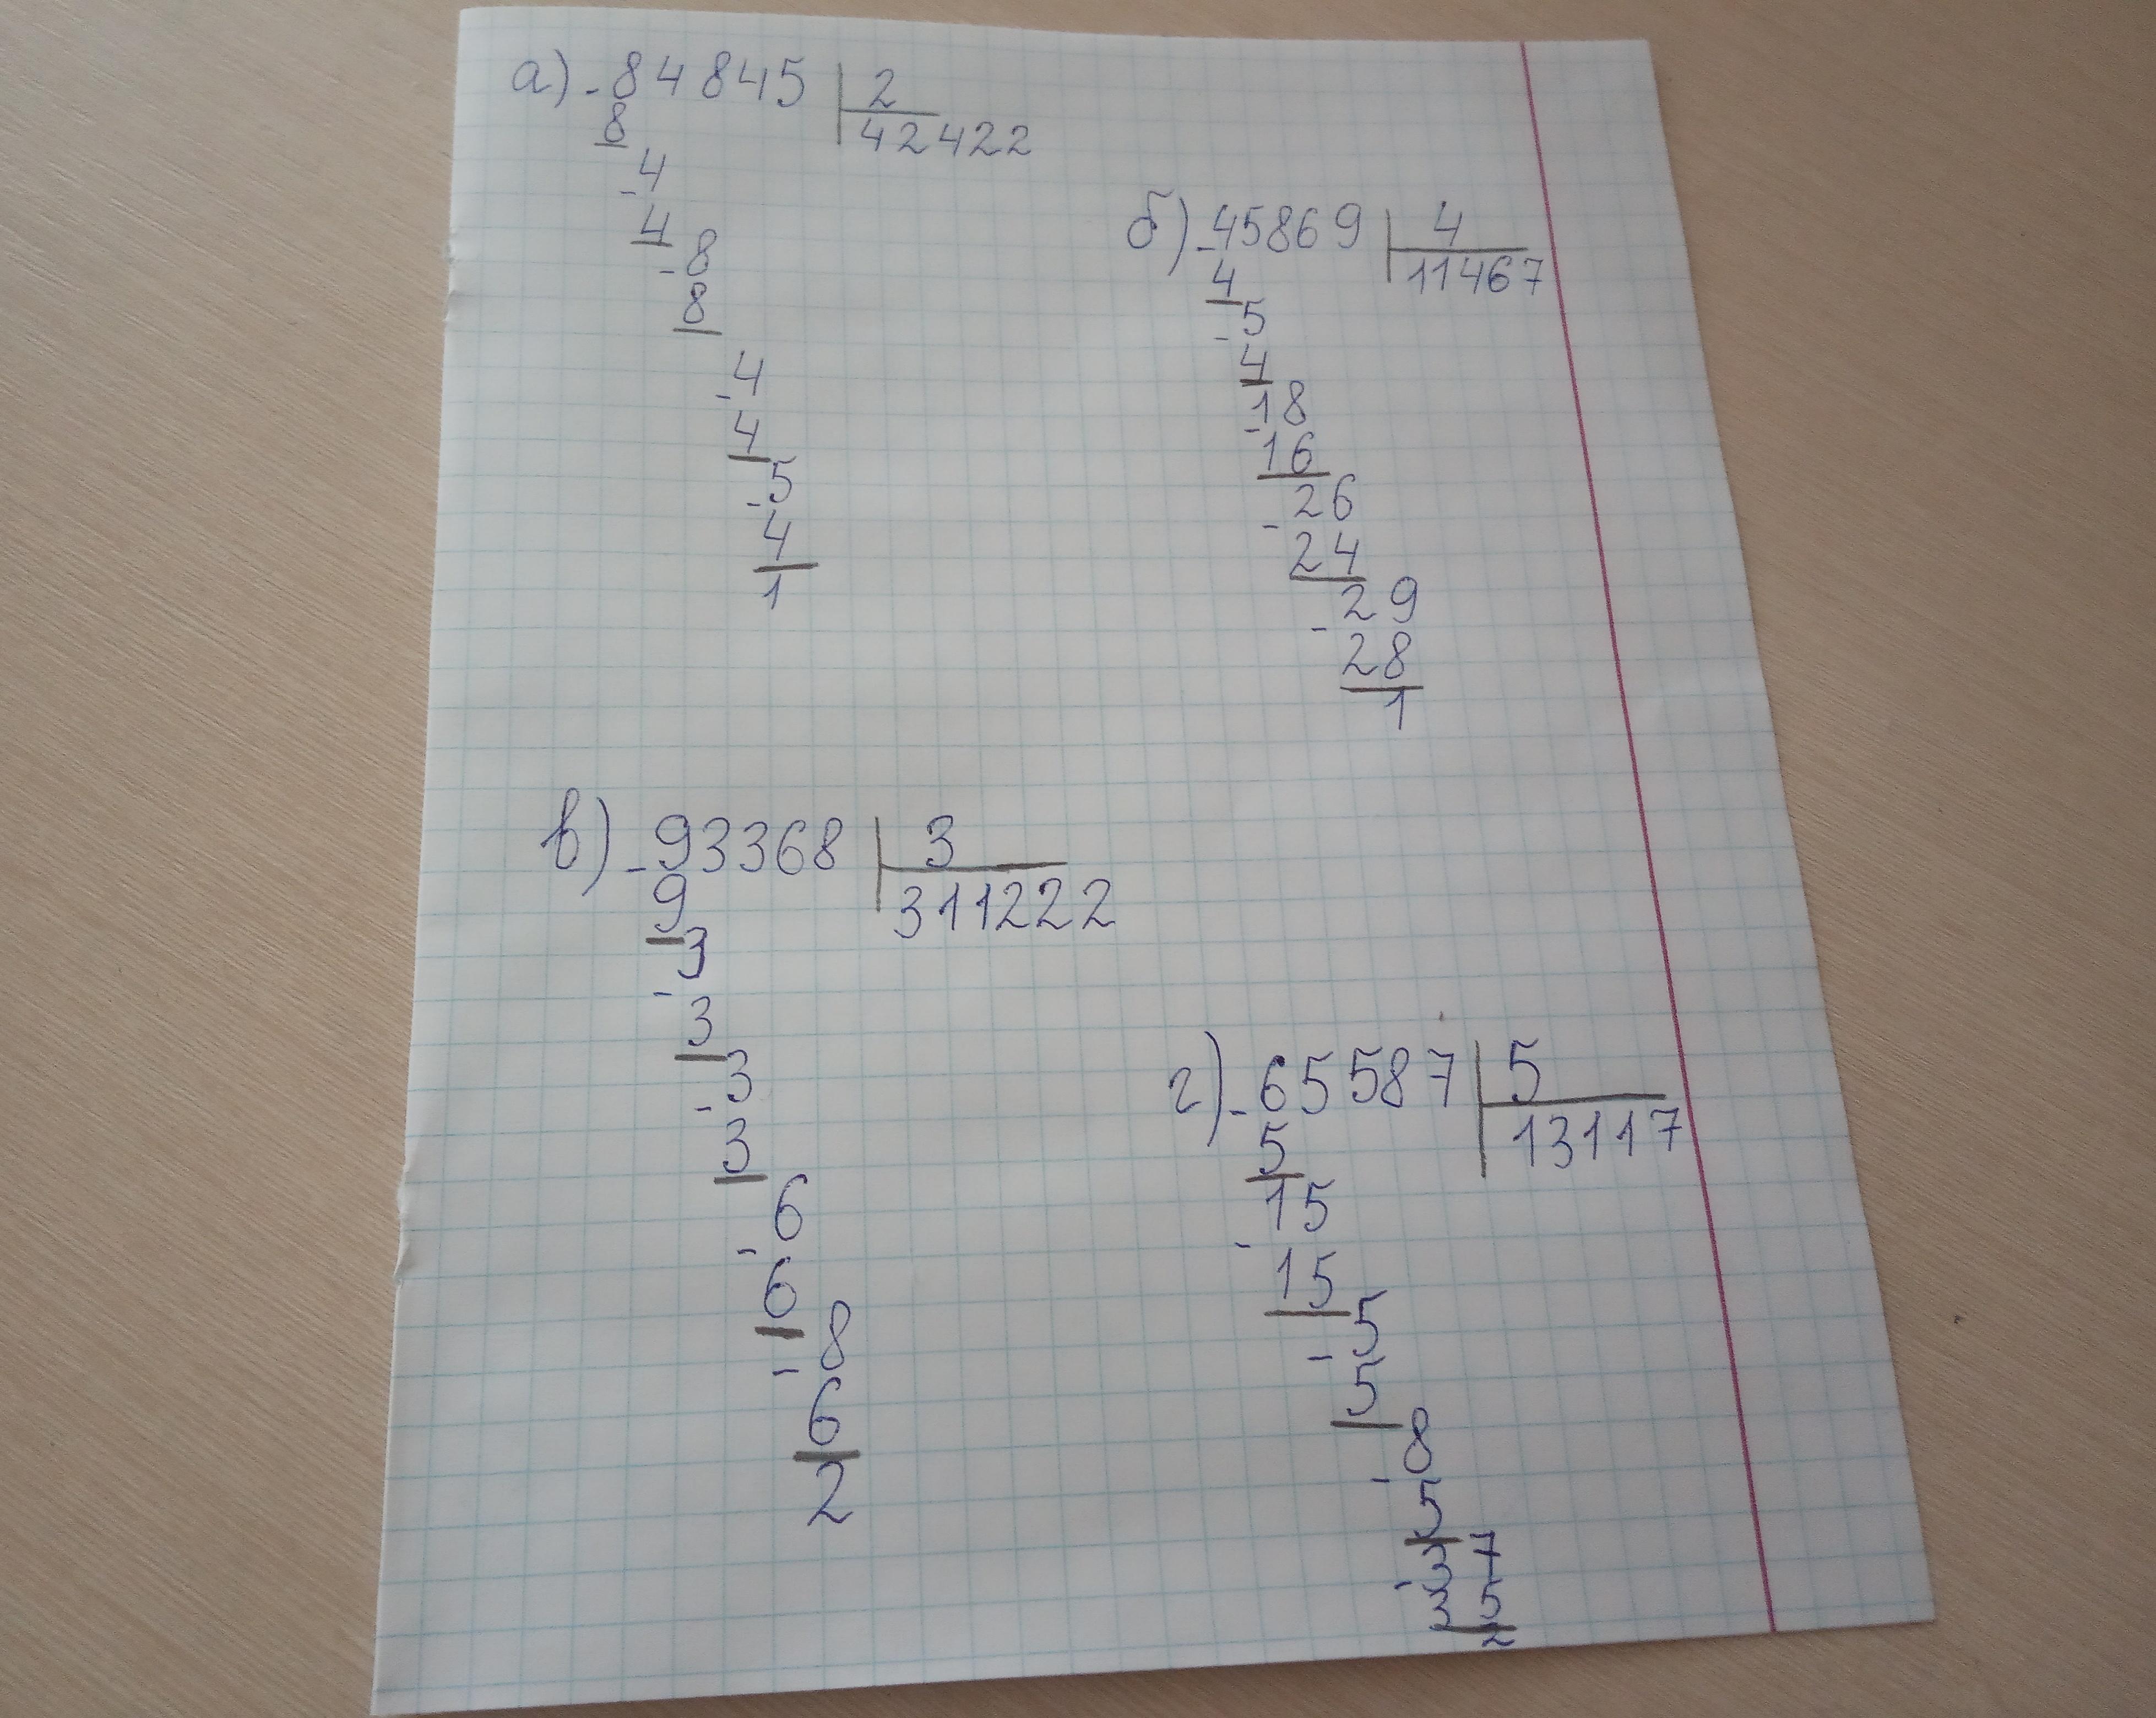 а) -84845 | 2
8 42422
-4
4
-8
8
-4
4
-5
4
1
б) -45869 | 4
4 11467
-5
4
-18
16
-26
24
-29
28
1
в) -93368 | 3
9 311222
-3
3
-3
3
-6
6
-8
6
2
г) -65587 | 5
5 13117
-15
15
-5
5
-8
5
-37
35
2